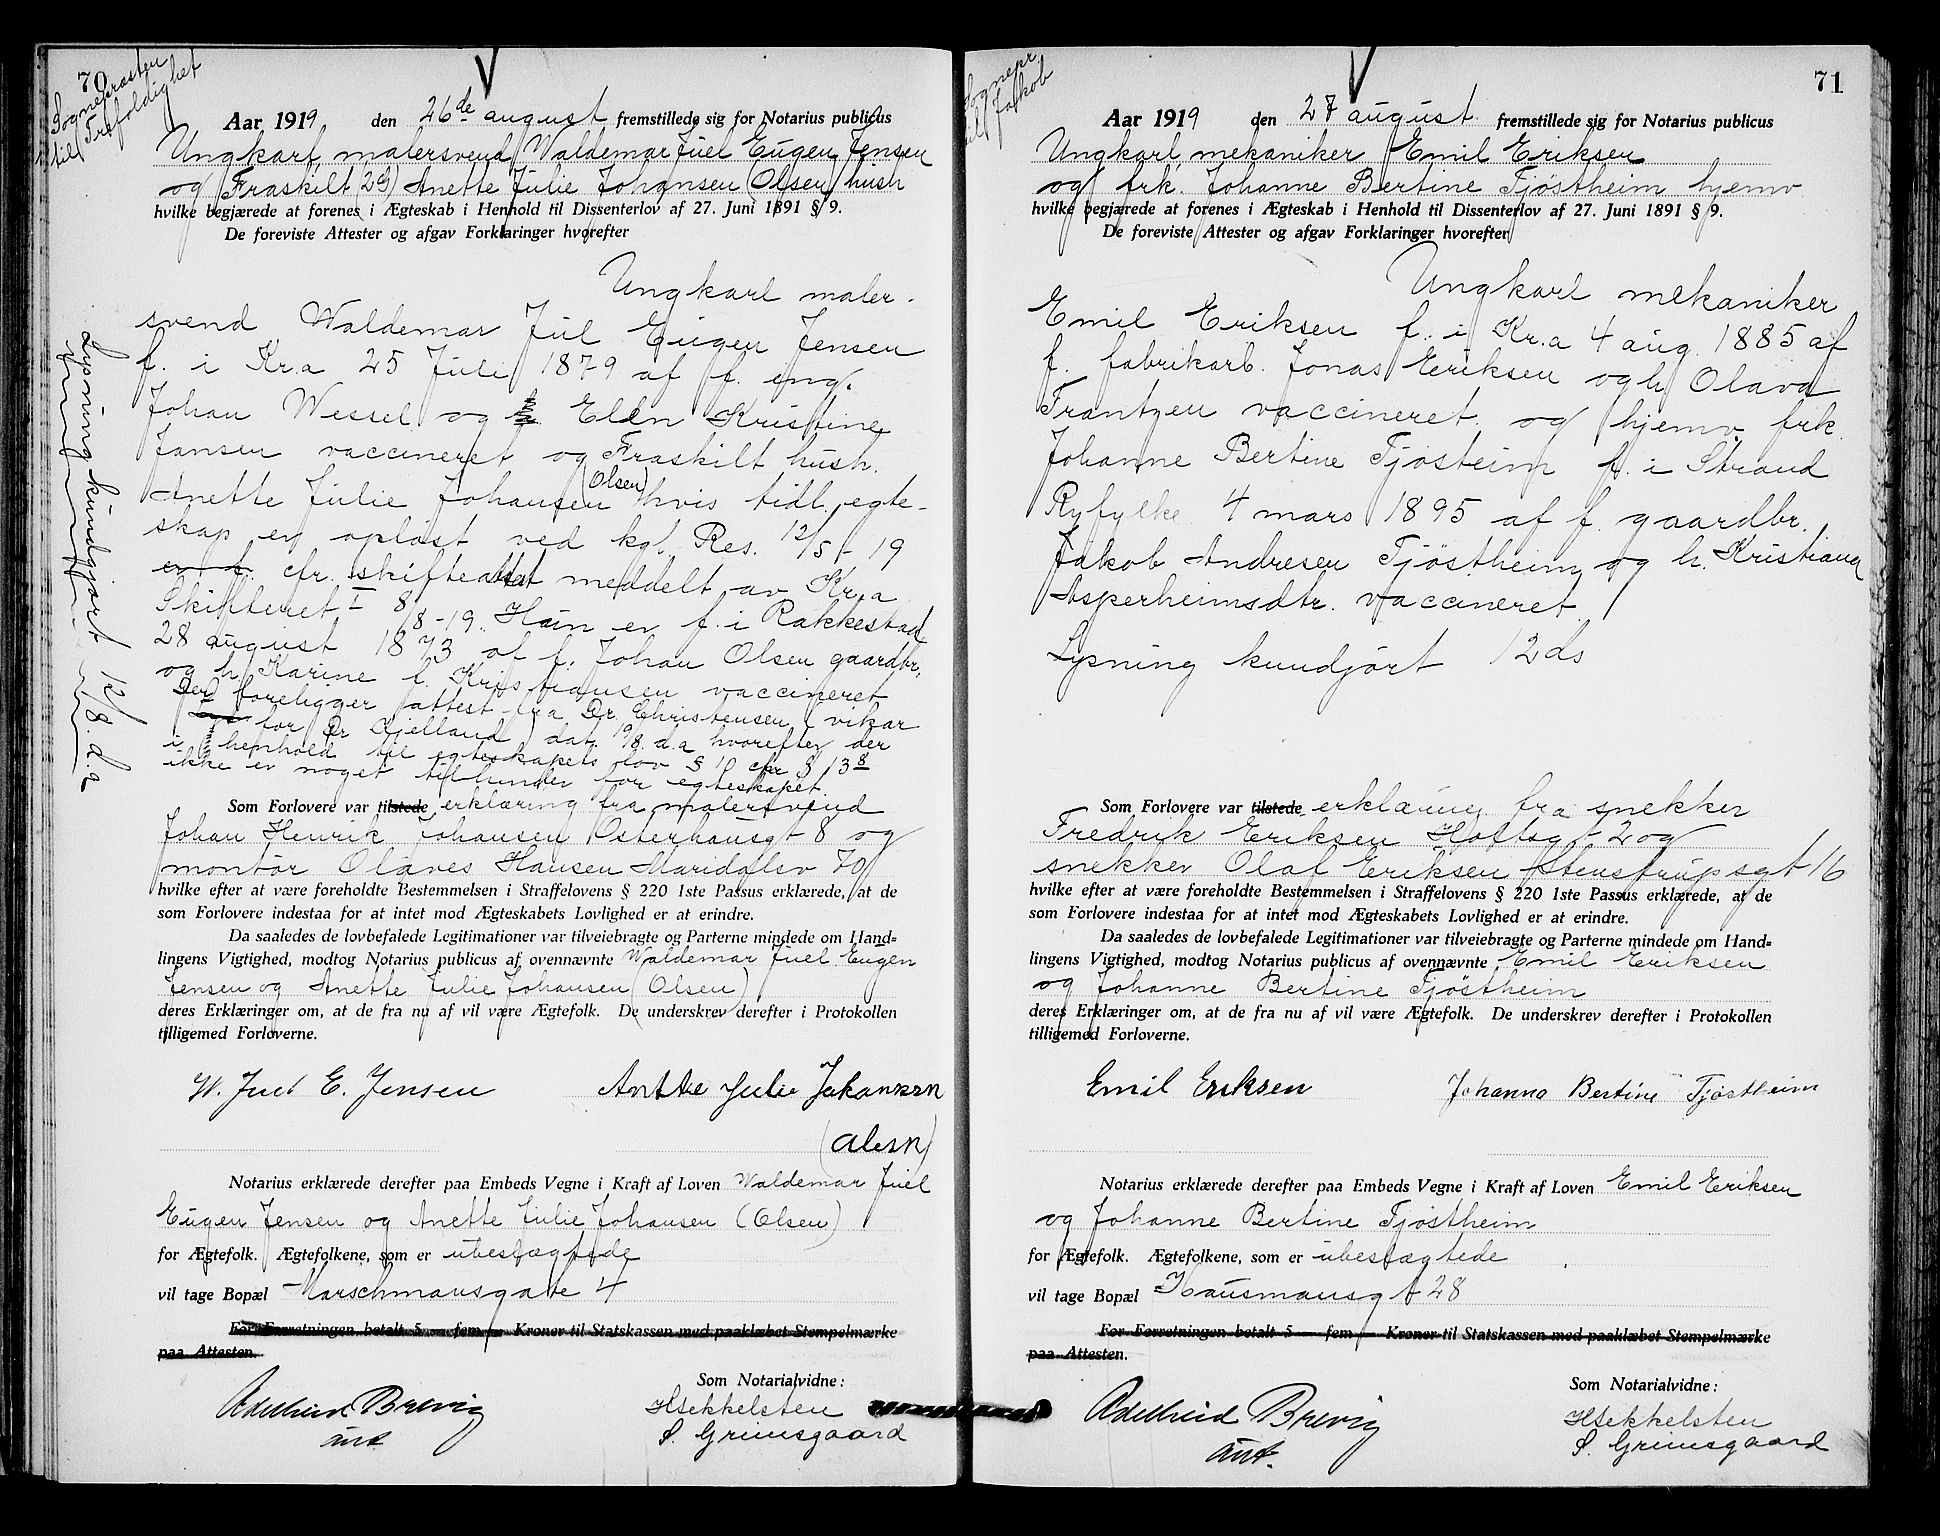 70
Sognepresten
til Trefoldighet
Aar 1919 den 26de august fremstillede sig for Notarius publicus
Ungkarl malersvend Waldemar Juel Eugen Jensen
og Fraskilt (29) Anette Julie Johansen (Olsen) hush
hvilke begjærede at forenes i Ægteskab i Henhold til Dissenterlov af 27. Juni 1891 § 9.
De foreviste Attester og afgav Forklaringer hvorefter
Ungkarl maler-
svend Waldemar Jul Eugen Jensen
f. i Kr.a 25 Juli 1879 af f. ing.
Johan Wessel og Elen Kristine
Jansen vaccineret og Fraskilt hush.
Anette Julie Johansen (Olsen) hvis tidl. egte-
skap er opløst ved kgl. Res. 12/5-19
er f. cfr. skifteattest meddelt av Kr.a
Skifteret I 8/8-19. Hun er f. i Rakkestad
28 august 1873 af f. Johan Olsen gaardbr,
og h. Karine f. Kristiansen vaccineret
Der foreligger attest fra Dr. Christensen (vikar
for Dr Kjelland) dat. 19/8. d.a hvorefter der
i henhold til egteskapets lov § 10 cfr § 13 8
ikke er noget tilhinder for egteskapet.
Lysning kundgjort 12/8. d. a
Som Forlovere var tilstede erklæring fra malersvend
Johan Henrik Johansen Osterhausgt 8 og
montør Olaves Hansen Maridalsv 70
hvilke efter at være foreholdte Bestemmelsen i Straffelovens § 220 1ste Passus erklærede, at de
som Forlovere indestaa for at intet mod Ægteskabets Lovlighed er at erindre.
Da saaledes de lovbefalede Legitimationer var tilveiebragte og Parterne mindede om Hand=
lingens Vigtighed, modtog Notarius publicus af ovennævnte Waldemar Juel Eugen
Jensen og Anette Julie Johansen (Olsen)
deres Erklæringer om, at de fra nu af vil være Ægtefolk. De underskrev derefter i Protokollen
tilligemed Forloverne.
W. Juel E. Jensen Anette Julie Johansen
(Olesn)
Notarius erklærede derefter paa Embeds Vegne i Kraft af Loven Waldemar Juel
Eugen Jensen og Anette Julie Johansen (Olsen)
for Ægtefolk. Ægtefolkene, som er ubeslægtede
vil tage Bopæl Marschmansgate 4
For Forretningen betalt 5 — fem — Kroner til Statskassen med paaklæbet Stempelmærke
paa Attesten.
Som Notarialvidne:
Adelheid Brevig
aut
HSekkelsten
S. Grimsgaard
71
Sognepr.
til Jakob
Aar 1919 den 27 august fremstillede sig for Notarius publicus
Ungkarl mekaniker Emil Eriksen
og frk. Johanne Bertine Tjöstheim hjemv
hvilke begjærede at forenes i Ægteskab i Henhold til Dissenterlov af 27. Juni 1891 § 9.
De foreviste Attester og afgav Forklaringer hvorefter
Ungkarl mekaniker
Emil Eriksen f. i Kr.a 4 aug. 1885 af
f. fabrikarb. Jonas Eriksen og h Olava
Frantzen vaccineret og hjemv frk.
Johanne Bertine Tjösteim f. i Strand
Ryfylke 4 mars 1895 af f. gaardbr.
Jakob Andresen Tjöstheim og h. Kristiana
Asperheimsdtr. vaccineret
Lysning kundjört 12 ds
Som Forlovere var tilstede erklæring fra snekker
Fredrik Eriksen Holtsgt 2 og
snekker Olaf Eriksen Stenstrupsgt 16
hvilke efter at være foreholdte Bestemmelsen i Straffelovens § 220 1ste Passus erklærede, at de
som Forlovere indestaa for at intet mod Ægteskabets Lovlighed er at erindre.
Da saaledes de lovbefalede Legitimationer var tilveiebragte og Parterne mindede om Hand=
lingens Vigtighed, modtog Notarius publicus af ovennævnte Emil Eriksen
og Johanne Bertine Tjöstheim
deres Erklæringer om, at de fra nu af vil være Ægtefolk. De underskrev derefter i Protokollen
tilligemed Forloverne.
Emil Eriksen Johanna Bertine Tjøstheim
Notarius erklærede derefter paa Embeds Vegne i Kraft af Loven Emil Eriksen
og Johanne Bertine Tjöstheim
for Ægtefolk. Ægtefolkene, som er ubeslægtede
vil tage Bopæl Hausmansgt 28
For Forretningen betalt 5 — fem — Kroner til Statskassen med paaklæbet Stempelmærke
paa Attesten.
Som Notarialvidne:
Adelheid Brevig
aut.
HSekkelsten
S. Grimsgaard